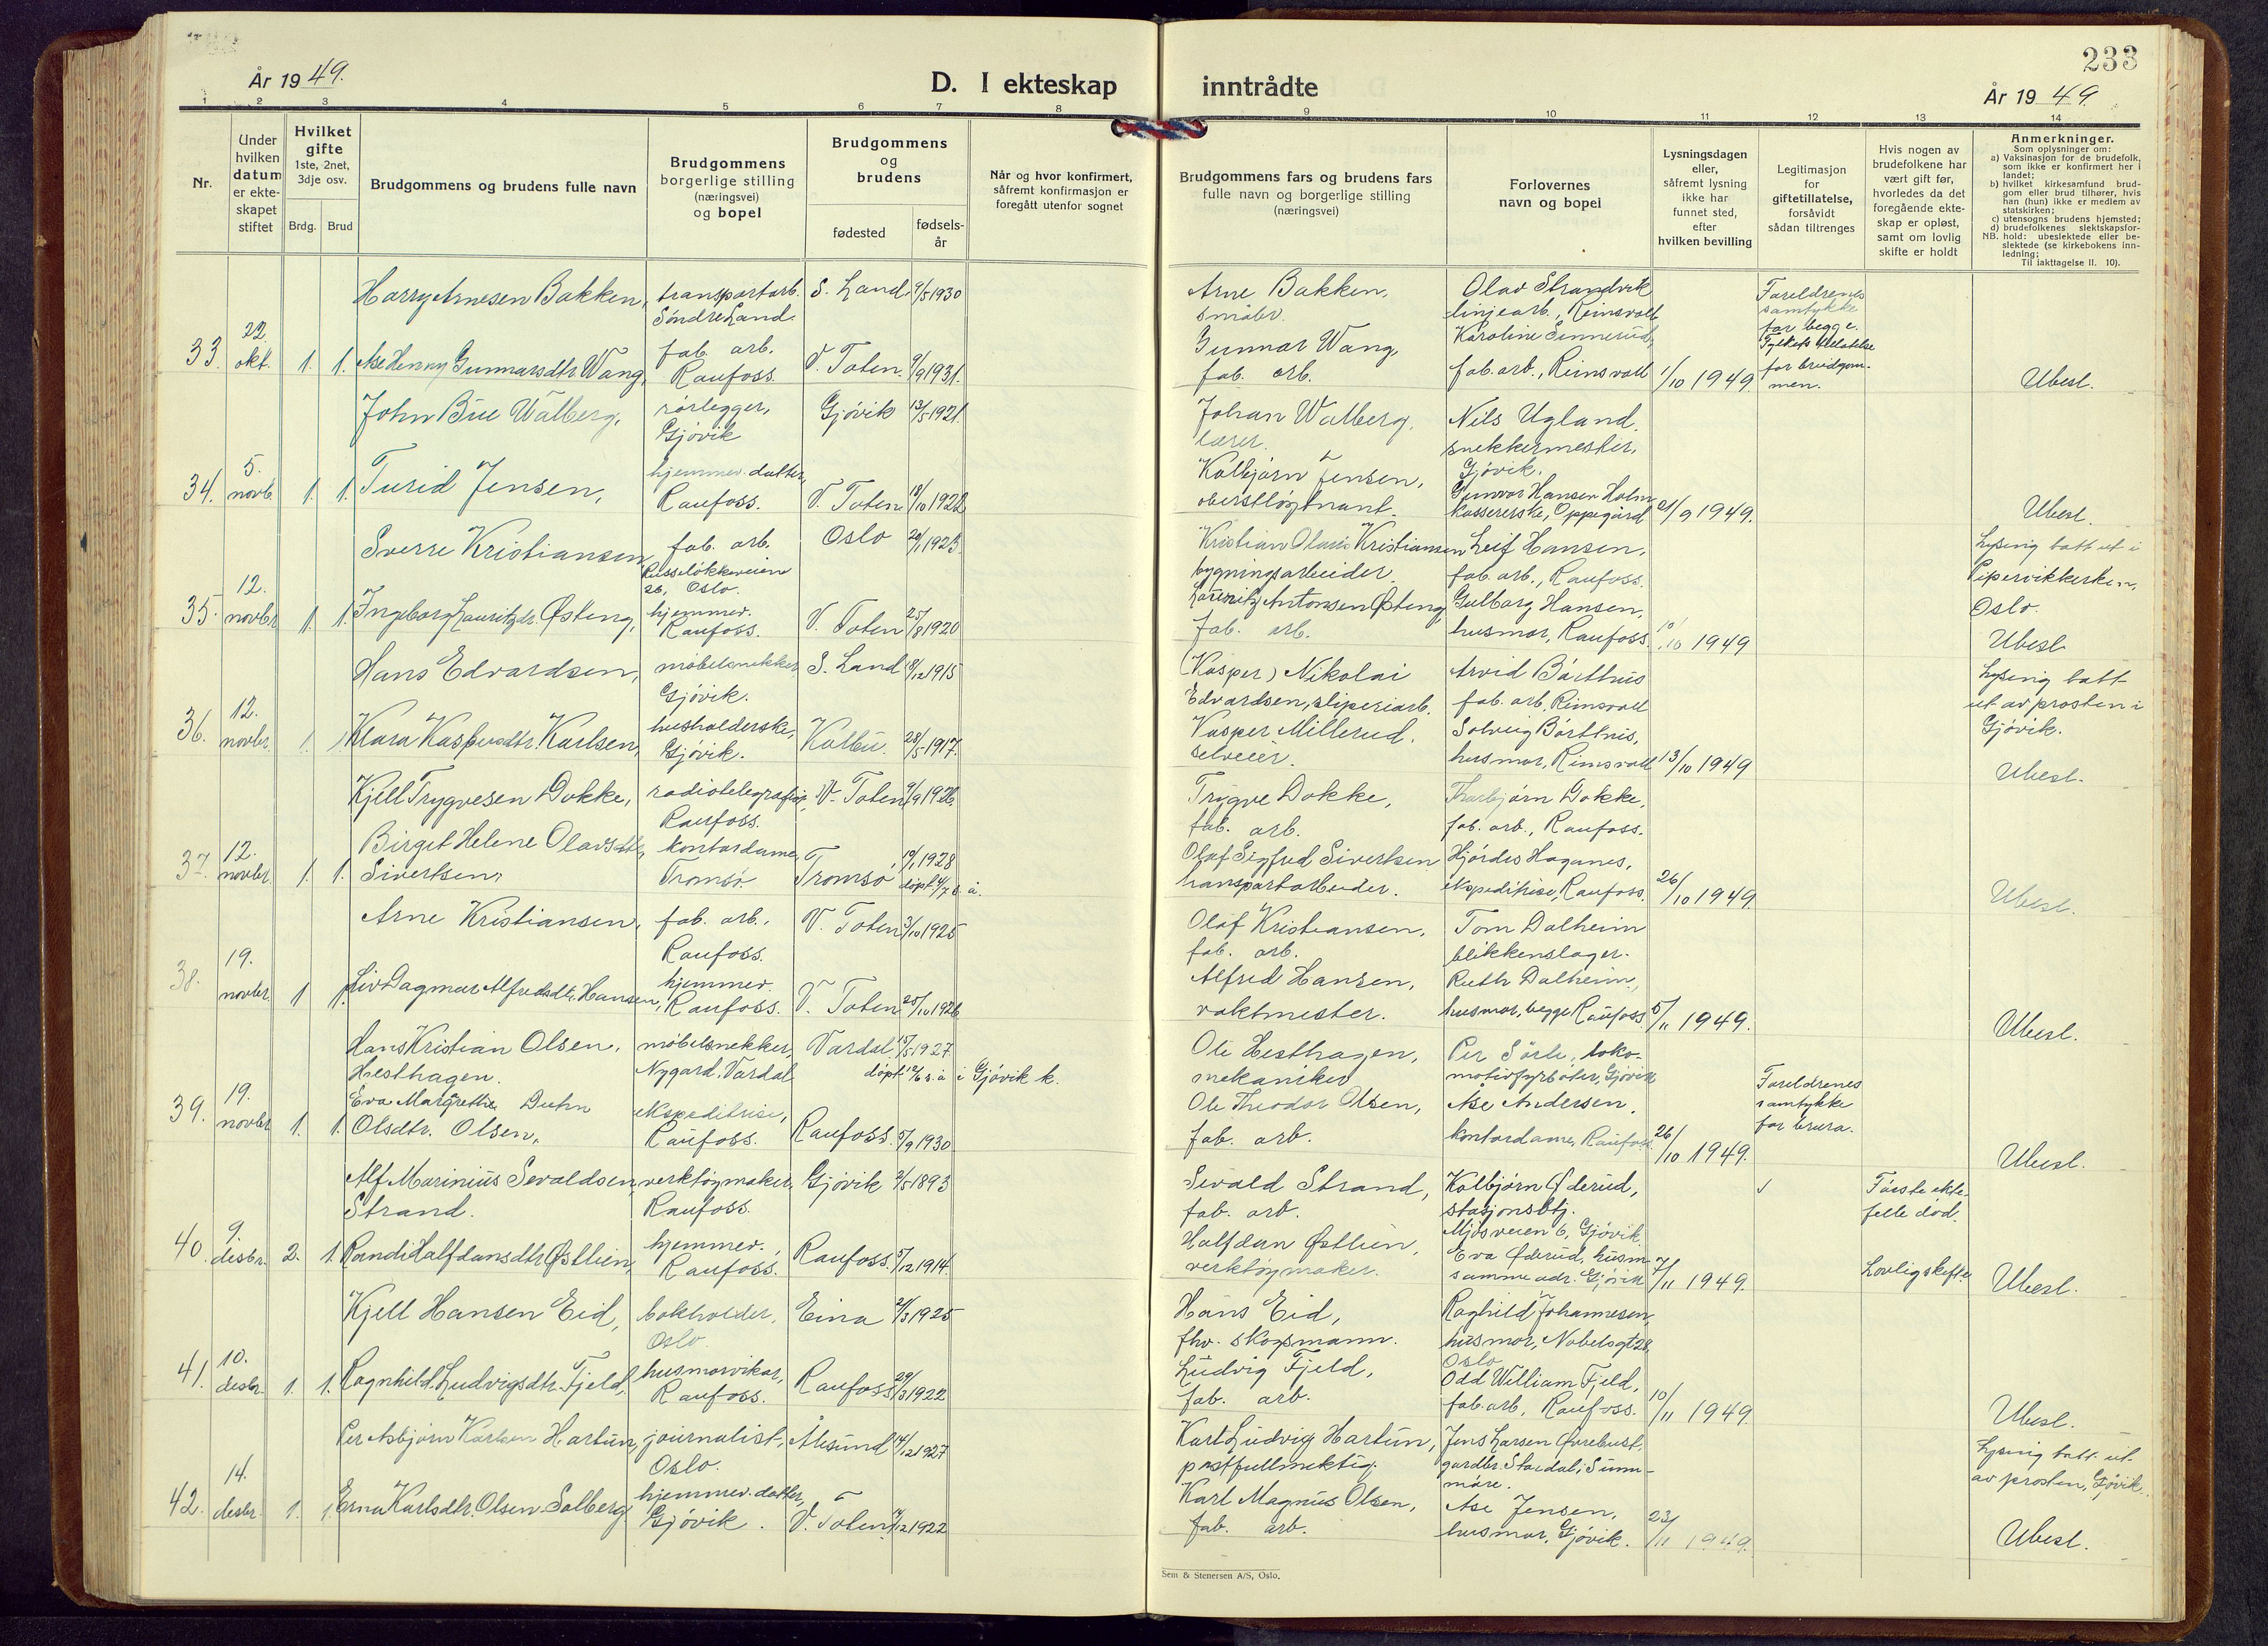 År 1949.
D. I ekteskap
inntrådte
233
År 1949
1 2 3 4 5 6 7 8
9 10 11 12 13 14
Nr.
Under hvilken datum er ekteskapet stiftet
Hvilket gifte
1ste, 2net, 3dje osv.
Brdg. Brud
Brudgommens og brudens fulle navn
Brudgommens borgerlige stilling (næringsvei) og bopel
Brudgommens og brudens
fødested
fødselsår
Når og hvor konfirmert, såfremt konfirmasjon er foregått utenfor sognet
Brudgommens fars og brudens fars fulle navn og borgerlige stilling (næringsvei)
Forlovernes navn og bopel
Lysningsdagen eller, såfremt lysning ikke har funnet sted, efter hvilken bevilling
Legitimasjon for giftetillatelse, forsåvidt sådan tiltrenges
Hvis nogen av brudefolkene har vært gift før, hvorledes da det foregående ekteskap er opløst, samt om lovlig skifte er holdt
Anmerkninger.
Som oplysninger om:
a) Vaksinasjon for de brudefolk, som ikke er konfirmert her i landet;
b) hvilket kirkesamfund brudgom eller brud tilhører, hvis han (hun) ikke er medlem av statskirken;
c) utensogns brudens hjemsted;
d) brudefolkenes slektskapsforhold: ubeslektede eller beslektede (se kirkebokens innledning;
NB. Til iakttagelse II. 10).
33. 22. okt. 1. 1.
Harry Arnesen Bakken, transportarb. Søndre Land. S. Land 9/5 1930
Åse Henny Gunnarsdtr. Wang, fab. arb. Raufoss. V. Toten. 9/9 1931.
Arne Bakken, småbr.
Gunnar Wang, fab. arb.
Olav Strandvik linjearb., Reinsvoll
Karoline Sinnerud, fab. arb., Reinsvoll
1/10 1949.
Foreldrenes samtykke for begge. Fylkets tillatelse for brudgommen.
Ubesl.
34. 5. novb. 1. 1.
John Bue Walberg, rørlegger, Gjøvik Gjøvik 13/5 1921.
Turid Jensen, hjemmev. datter, Raufoss. V. Toten 18/10 1922
Johan Walberg, lærer.
Kolbjørn Jensen, oberstløytnant.
Nils Ugland. snekkermester, Gjøvik.
Gunvor Hansen Holm kassererske, Oppegård
21/9 1949.
Ubesl.
35. 12. novbr. 1. 1.
Sverre Kristiansen, fab. arb. Russeløkkveien 26, Oslo. Oslo 20/1 1923
Ingeborg Lauritzdtr. Østeng, hjemmev. Raufoss. V. Toten 25/8 1920
Kristian Olaus Kristiansen bygningsarbeider.
Lauritz Antonsen Østeng, fab. arb.
Leif Hansen, fab. arb., Raufoss.
Gulborg Hansen, husmor, Raufoss.
10/10 1949
Lysing tatt ut i Pipervikkirken, Oslo.
Ubesl.
36. 12. novbr. 1. 1
Hans Edvardsen, møbelsnekker Gjøvik. S. Land 8/12 1915
Klara Kaspersdtr. Karlsen, husholderske, Gjøvik. Kolbu. 28/5 1917.
(Kasper) Nikolai Edvardsen, sliperiarb.
Kasper Millerud. selveier.
Arvid Børthus fab. arb. Reinsvoll
Solveig Børthus, husmor, Reinsvoll
13/10 1949
Lysing tatt ut av prosten i Gjøvik.
Ubesl.
37. 12. novbr. 1. 1.
Kjell Trygvesen Dokke, radiotelegrafist, Raufoss. V. Toten 9/9 1926
Birget Helene Olavsdtr. Sivertsen, kontordame, Tromsø. Tromsø 19/1 1928 døpt 4/7 s. å.
Trygve Dokke, fab. arb.
Olaf Sigfred Sivertsen transportarbeider.
Thorbjørn Dokke, fab. arb., Raufoss.
Hjørdis Haganes, ekspeditrise, Raufoss.
26/10 1949.
Ubesl.
38. 19. novbr. 1 1.
Arne Kristiansen, fab. arb., Raufoss. V. Toten 3/10 1925
Liv Dagmar Alfredsdtr. Hansen, hjemmev. Raufoss. V. Toten 25/10 1926
Olaf Kristiansen, fab. arb.
Alfred Hansen, vaktmester.
Tom Dalheim blikkenslager.
Ruth Dalheim, husmor, begge Raufoss.
5/11 1949.
Ubesl.
39. 19. novbr 1. 1.
Hans Kristian Olsen Hesthagen. møbelsnekker, Nygard, Vardal Vardal 15/5 1927. døpt 12/6 s. å i Gjøvik k.
Eva Margrethe Olsdtr. Olsen, ekspeditrise, Raufoss. Raufoss. 5/9 1930
Ole Hesthagen, mekaniker
Ole Theodor Olsen, fab. arb.
Per Sørli, lokomotivfyrbøter, Gjøvik
Åse Andersen, kontordame, Raufoss
26/10 1949.
Foreldrenes samtykke for brura.
Ubesl.
40. 9. desbr. 2. 1.
Alf Marinius Sevaldsen Strand. verktøymaker, Raufoss. Gjøvik 2/5 1893
Randi Halfdansdtr. Østlien, hjemmev. Raufoss. Raufoss. 5/12 1914.
Sevald Strand, fab. arb.
Halfdan Østlien, verktøymaker.
Kolbjørn Øderud, stasjonsbtj. Mjøsveien 6, Gjøvik.
Eva Øderud, husm. samme adr. Gjøvik
7/11 1949.
Første ektefelle død.
Lovlig skifte
Ubesl.
41. 10. desbr. 1. 1.
Kjell Hansen Eid, bokholder, Oslo. Eina 21/3 1925
Ragnhild Ludvigsdtr. Fjeld, husmorvikar, Raufoss. Raufoss 29/3 1922
Hans Eid, fhv. skogsmann.
Ludvig Fjeld, fab. arb.
Raghild Johannesen, husmor, Nobelsgt. 28, Oslo
Odd William Fjeld, fab. arb., Raufoss.
10/11 1949.
Ubesl.
42. 14. desbr. 1. 1.
Per Asbjørn Karlsen Hartun, journalist, Oslo. Ålesund 14/12 1927
Erna Karlsdtr. Olsen Solberg hjemmev. datter, Gjøvik. V. Toten 12 1922
Karl Ludvig Hartun, postfullmektig.
Karl Magnus Olsen, fab. arb.
Jens Larsen Øvrebust, gardbr. Stordal i Sunnmøre.
Åse Jensen, husmor, Gjøvik.
23/11 1949.
Lysing tatt ut av prosten, Gjøvik.
Ubesl.
Sem & Stenersen A/S, Oslo.